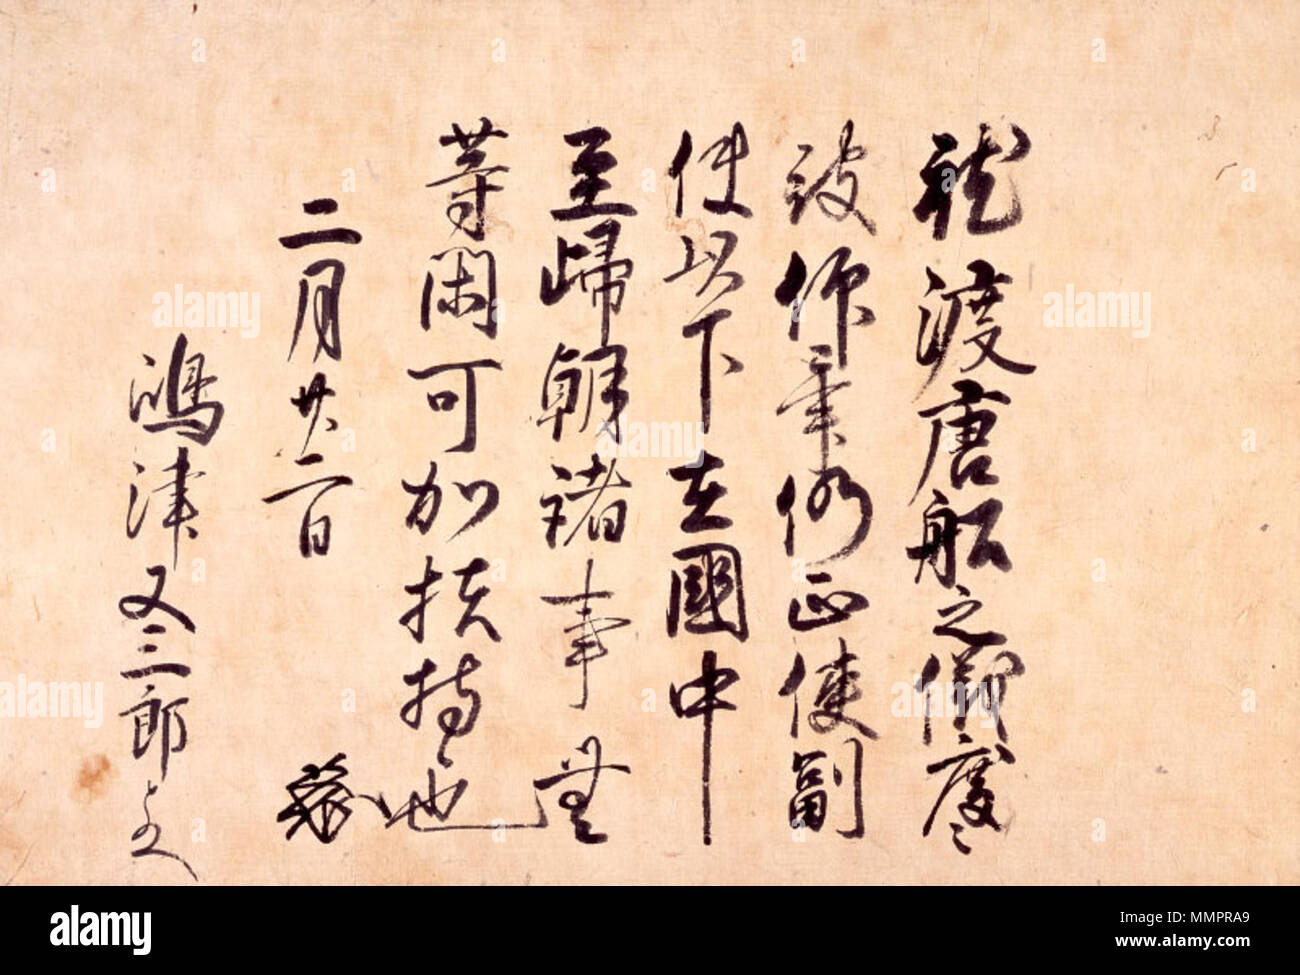 就渡唐船之儀度々
被仰畢仍正使副
使以下在國中
至歸朝諸事無
等閑可加扶持也
二月廿二日
嶋津又三郎とのへ
alamy
alamy
alamy
alamy
alamy
alamy
alamy
Image ID: MMPRA9
www.alamy.com